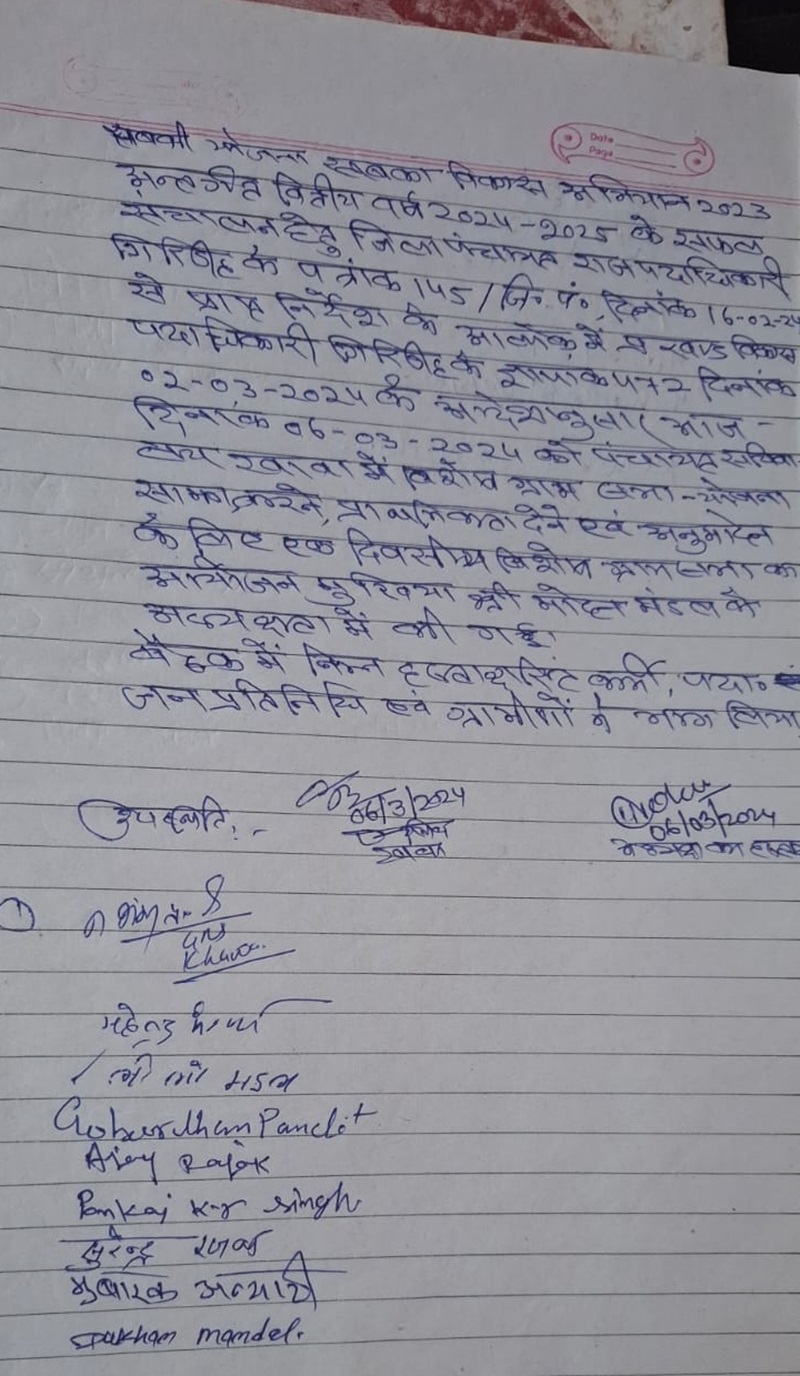 सबकी योजना सबका विकास अभियान 2023
अन्तर्गत वित्तीय वर्ष 2024-2025 के सफल
संचालन हेतु जिला पंचायत राज पदाधिकारी
गिरिडीह के पत्रांक 145/जि॰ पं॰, दिनांक 16-02-24
से प्राप्त निर्देश के आलोक में प्रखण्ड विकास
पदाधिकारी गिरिडीह के ज्ञापांक 472 दिनांक
02-03-2024 के आदेशानुसार आज-
दिनांक 06-03-2024 को पंचायत सचिवा
लय खावा में विशेष ग्राम सभा - योजना
प्राथमिकता देने एवं अनुमोदन
के लिए एक दिवसीय विशेष ग्रामसभा का
आयोजन मुखिया श्री मंडल के
अध्यक्षता में की गई।
बैठक में निम्न हस्ताक्षरित कर्मी, पदा॰
जनप्रतिनिधि एवं ग्रामीणों ने भाग लिया
Date
Page
उपस्थिति:-
06/3/2024
06/03/2024
अध्यक्ष का हस्ता
1
8
Khawa
महेन्द्र
मंडल
Gobardhan Pandit
Ajay Rajak
Pankaj kr singh
सुरेन्द्र रजक
मुबारक अन्सारी
mandal.